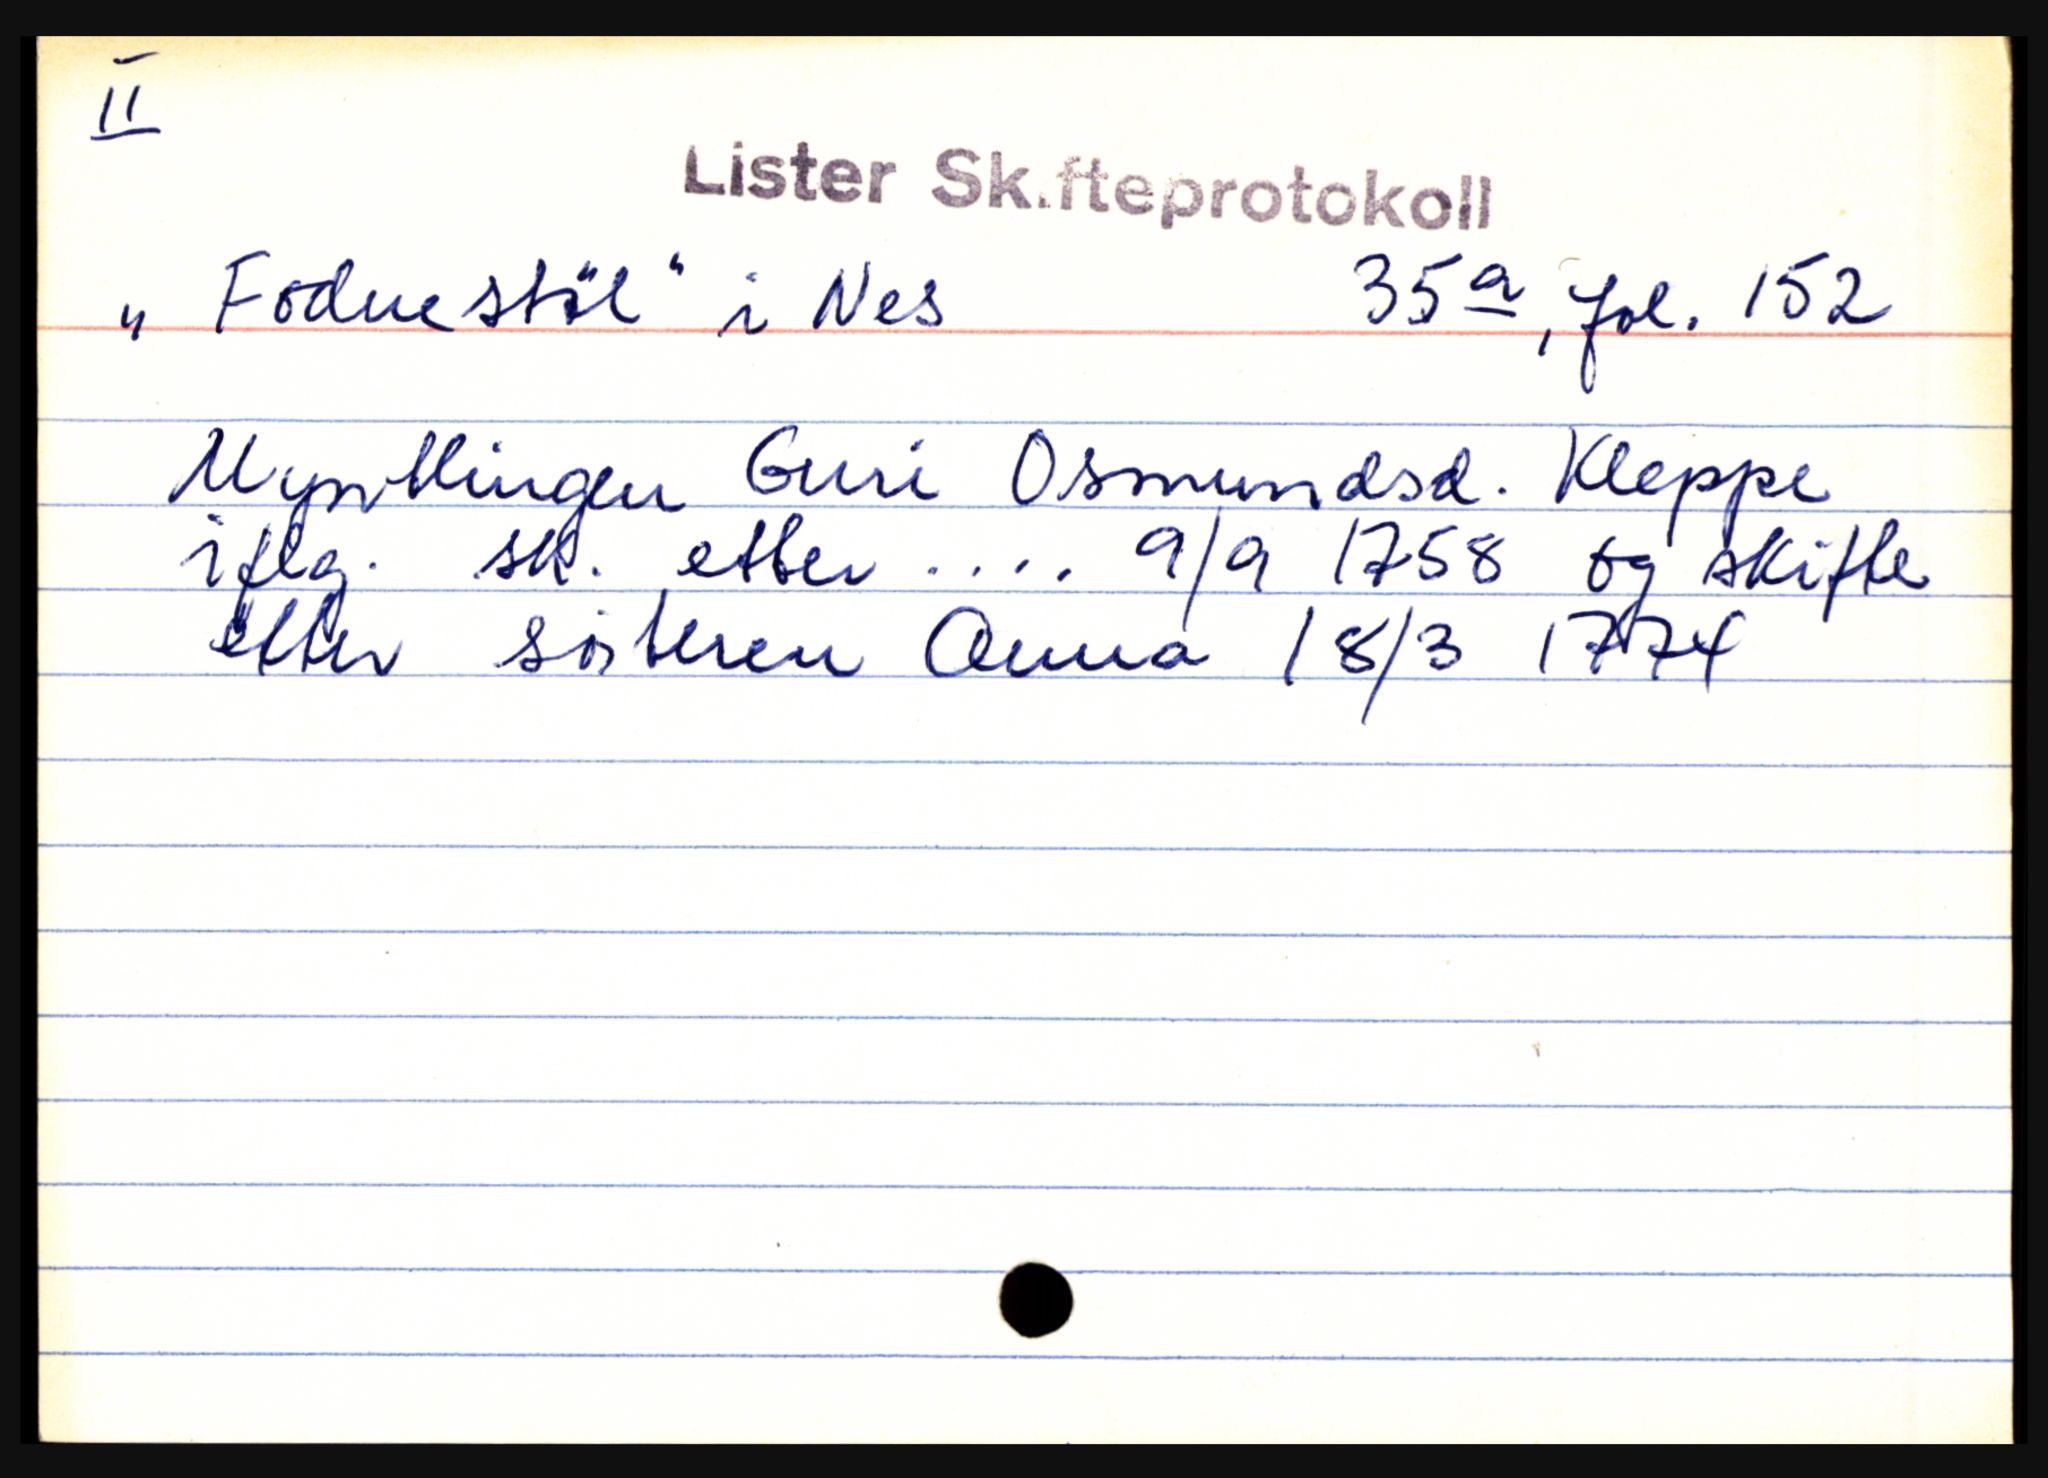 II
Lister Skifteprotokoll
„Fodnestöl“ i Nes 35a, fol. 152
Myndlingen Guri Osmundsd. Kleppe
iflg. sk. etter .... 9/9 1758 og skifte
etter søsteren Anna 18/3 1774